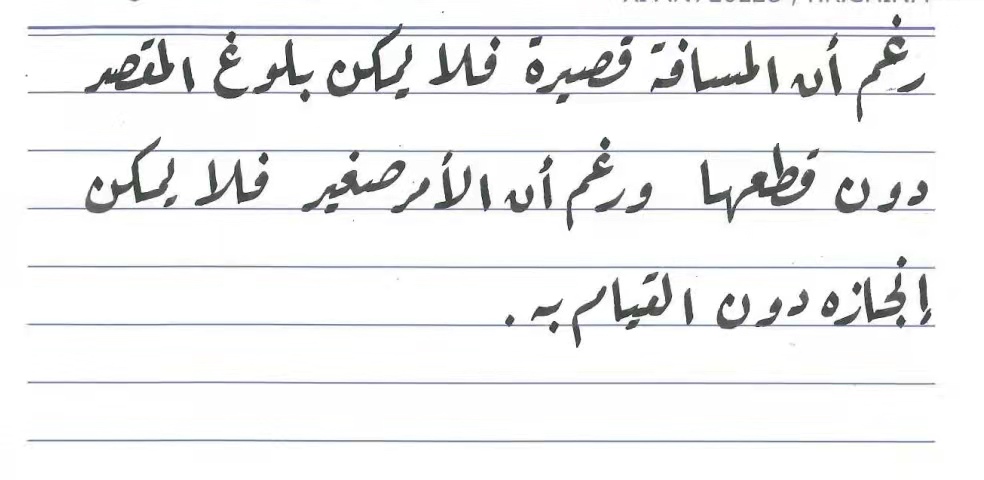 رغم أن المسافة قصيرة فلا يمكن بلوغ المقصد
دون قطعها ورغم أن الأمر صغير فلا يمكن
إنجازه دون القيام به .